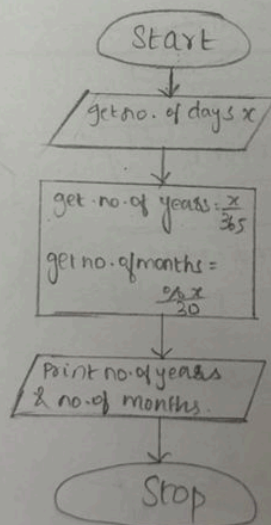 Start
get no. of days x
get no. of years = x/365
get no. of months =
% x/30
Print no. of years
& no. of months.
Stop